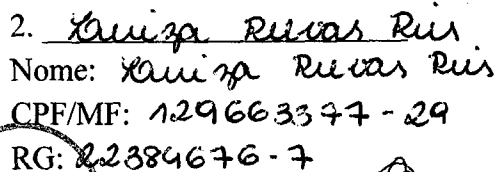 2. Lauiza Ruvas Reis
Nome: Lauiza Ruvas Reis
CPF/MF: 129663377-29
RG: 22384676-7